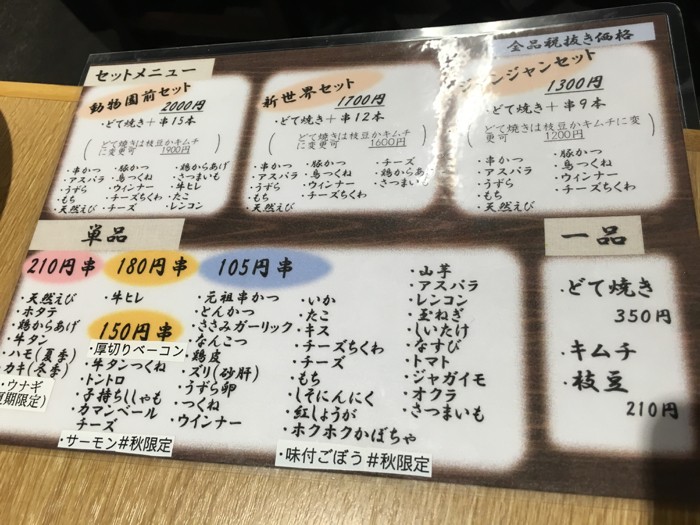 全品税抜き価格
セットメニュー
動物園前セット
2000円
・どて焼き＋串15本
(どて焼きは枝豆かキムチに変更可 1900円)
・串かつ ・豚かつ ・鶏からあげ
・アスパラ ・鳥つくね ・さつまいも
・うずら ・ウィンナー ・牛ヒレ
・もち ・チーズちくわ ・たこ
・天然えび ・チーズ ・レンコン
新世界セット
1700円
・どて焼き＋串12本
(どて焼きは枝豆かキムチに変更可 1600円)
・串かつ ・豚かつ ・チーズ
・アスパラ ・鳥つくね ・鶏からあ
・うずら ・ウィンナー ・さつまいも
・もち ・チーズちくわ
・天然えび
ジャンジャンセット
1300円
・どて焼き＋串9本
(どて焼きは枝豆かキムチに変更可 1200円)
・串かつ ・豚かつ
・アスパラ ・鳥つくね
・うずら ・ウィンナー
・もち ・チーズちくわ
・天然えび
単品
210円串
・天然えび
・ホタテ
・鶏からあげ
・牛タン
・ハモ(夏季)
・カキ(冬季)
・ウナギ
夏期限定)
180円串
・牛ヒレ
150円串
・厚切りベーコン
・牛タンつくね
・トントロ
・子持ちししゃも
・カマンベール
チーズ
・サーモン#秋限定
105円串
・元祖串かつ
・とんかつ
・ささみガーリック
・なんこつ
・鶏皮
・ズリ(砂肝)
・うずら卵
・つくね
・ウインナー
・いか
・たこ
・キス
・チーズちくわ
・チーズ
・もち
・しそにんにく
・紅しょうが
・ホクホクかぼちゃ
・味付ごぼう#秋限定
・山芋
・アスパラ
・レンコン
・玉ねぎ
・しいたけ
・なすび
・トマト
・ジャガイモ
・オクラ
・さつまいも
一品
・どて焼き
350円
・キムチ
・枝豆
210円